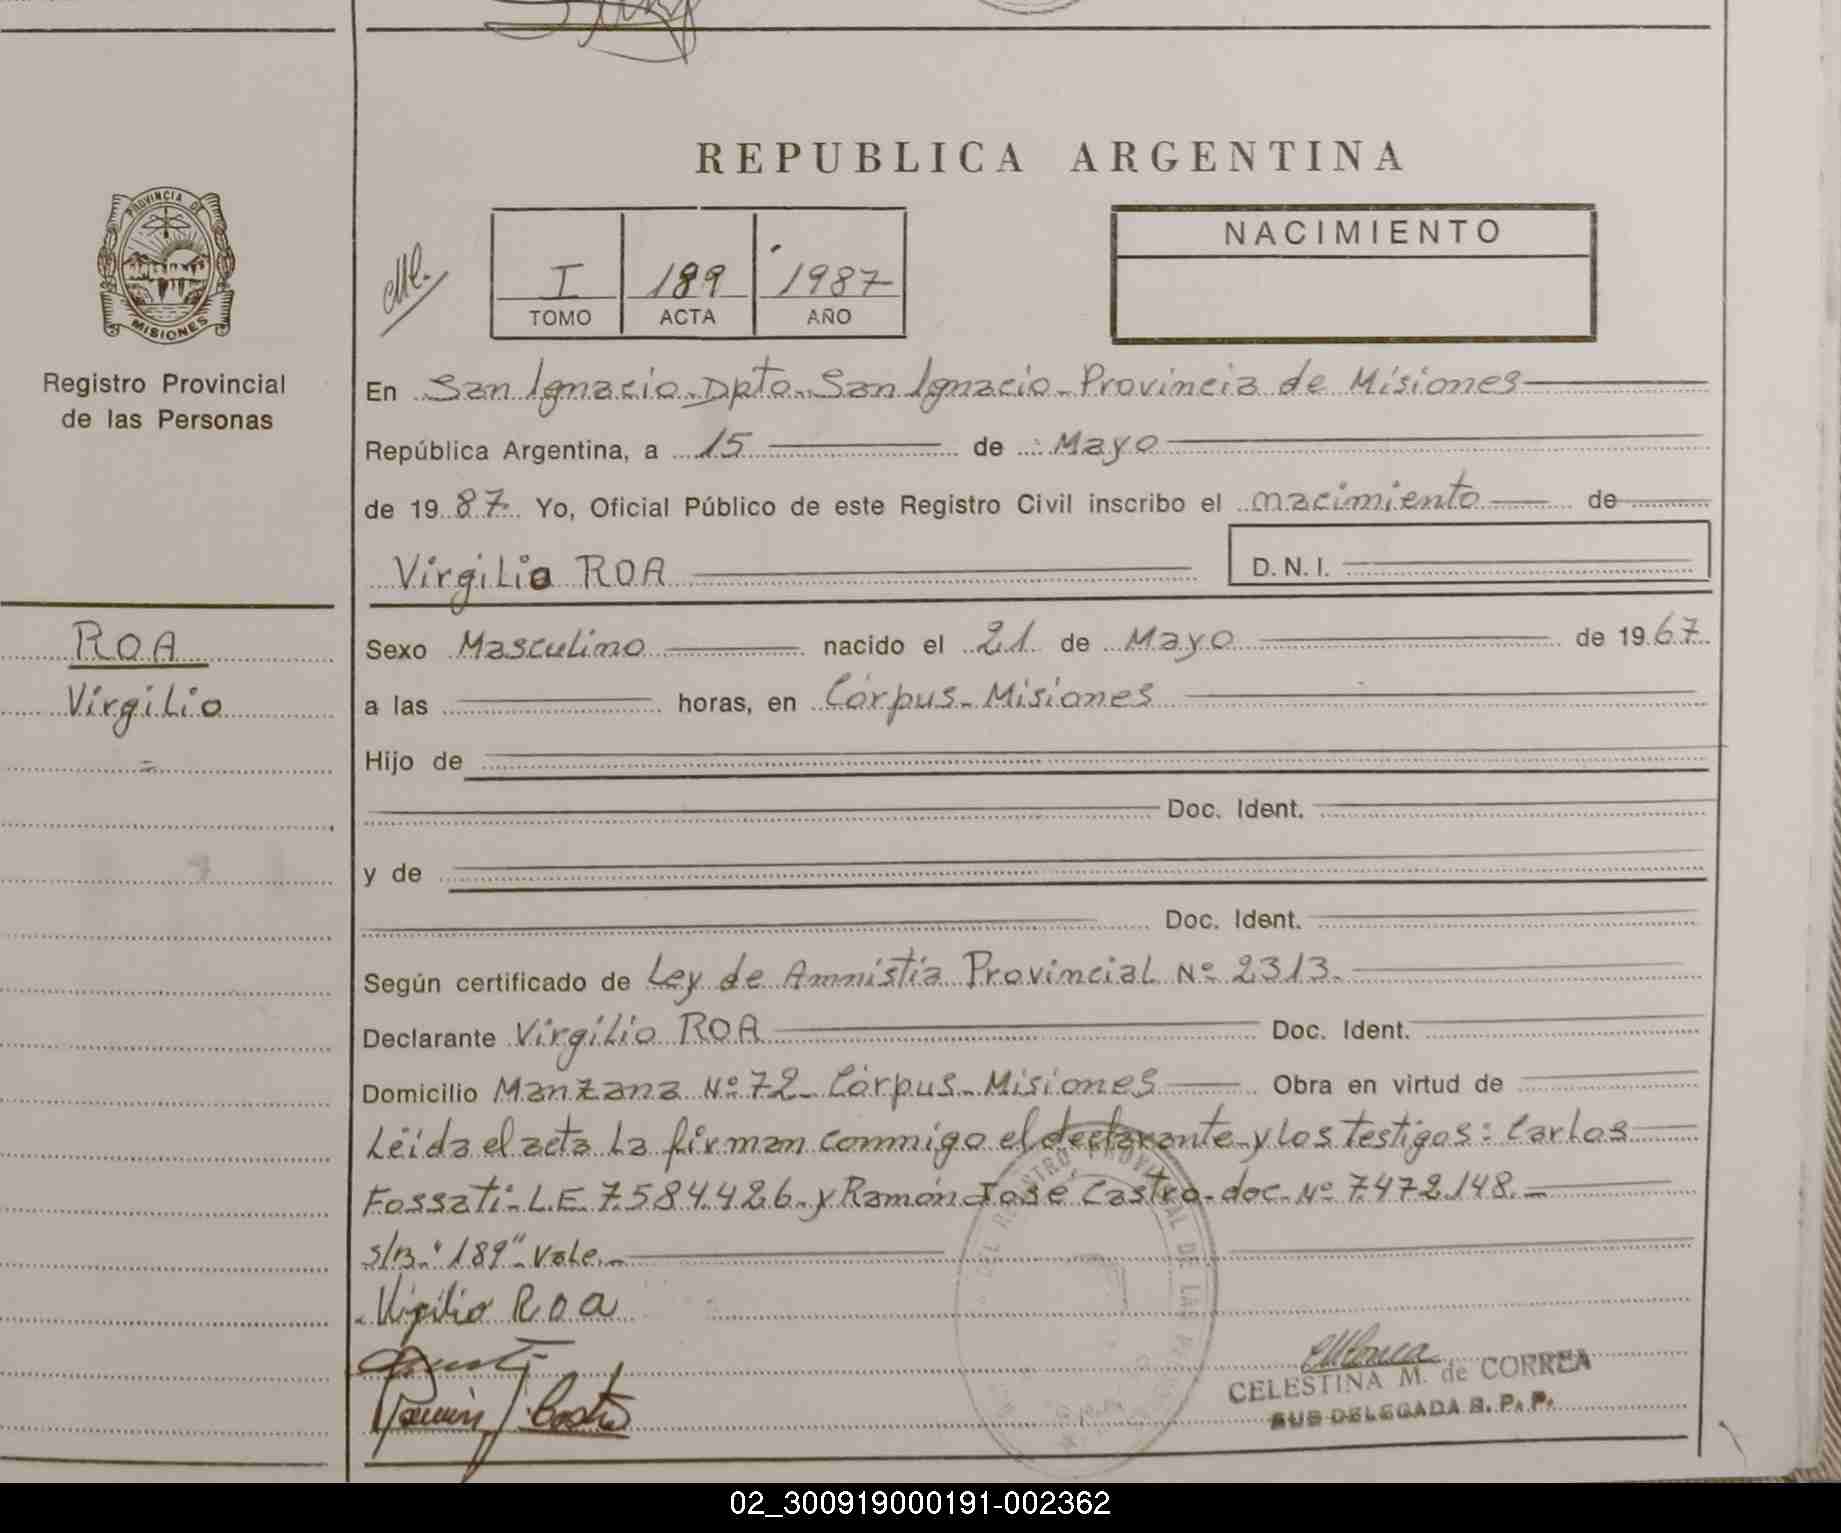 REPUBLICA ARGENTINA
PROVINCIA DE
MISIONES
Registro Provincial
de las Personas
I 189 1987
TOMO ACTA AÑO
NACIMIENTO
En San Ignacio-Dpto-San Ignacio-Provincia de Misiones
República Argentina, a 15 de Mayo
de 1987. Yo, Oficial Público de este Registro Civil inscribo el nacimiento de
Virgilio ROA D.N.I.
ROA
Virgilio
=
Sexo Masculino nacido el 21 de Mayo de 1967.
a las horas, en Córpus-Misiones
Hijo de
Doc. Ident.
y de
Doc. Ident.
Según certificado de Ley de Amnistía Provincial Nº 2313.
Declarante Virgilio ROA Doc. Ident.
Domicilio Manzana Nº 72- Córpus-Misiones Obra en virtud de
Léida el acta la firman conmigo el declarante y los testigos: Carlos
Fossati-L.E. 7.584.426-y Ramón José Castro-doc. Nº 7.472.148.-
s/r. "189" Vale.-
Virgilio Roa
Ramón J. Castro
CELESTINA M. de CORREA
SUB DELEGADA R. P. P.
02_300919000191-002362